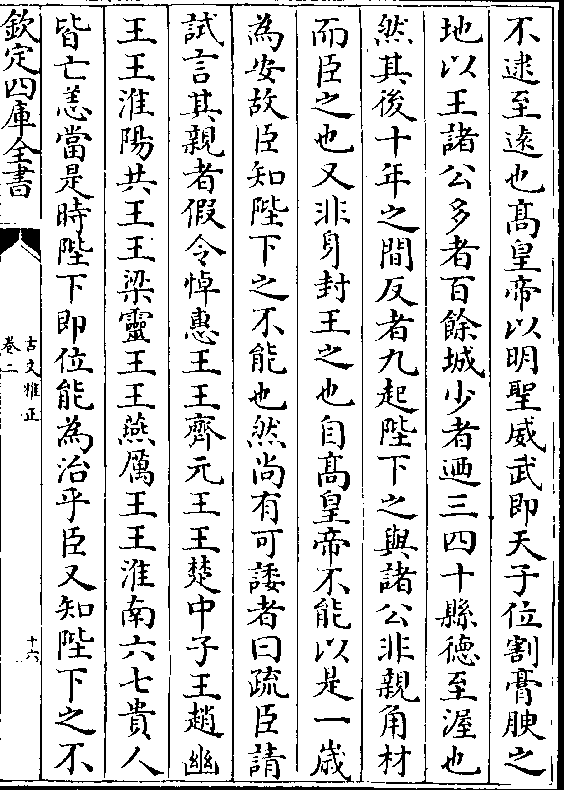 不逮至遠也髙皇帝以明聖威武即天子位割膏腴之
地以王諸公多者百餘城少者迺三四十縣德至渥也
然其後十年之間反者九起陛下之與諸公非親角材
而臣之也又非身封王之也自髙皇帝不能以是一歳
為安故臣知陛下之不能也然尚有可諉者曰疏臣請
試言其親者假令悼惠王王齊元王王楚中子王趙幽
王王淮陽共王王梁靈王王燕厲王王淮南六七貴人
皆亡恙當是時陛下即位能為治乎臣又知陛下之不
欽定四庫全書
古文雅正
卷二
十六